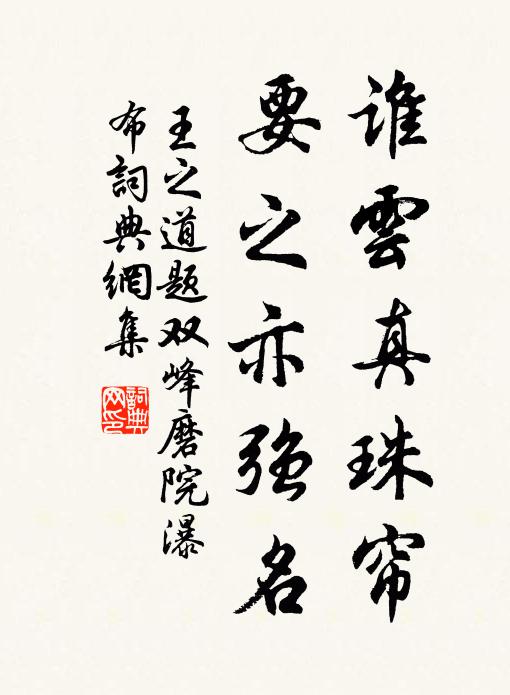 誰雲真珠帘
要之亦強名
王之道题双峰磨院瀑
布詞典網集
詞典网印